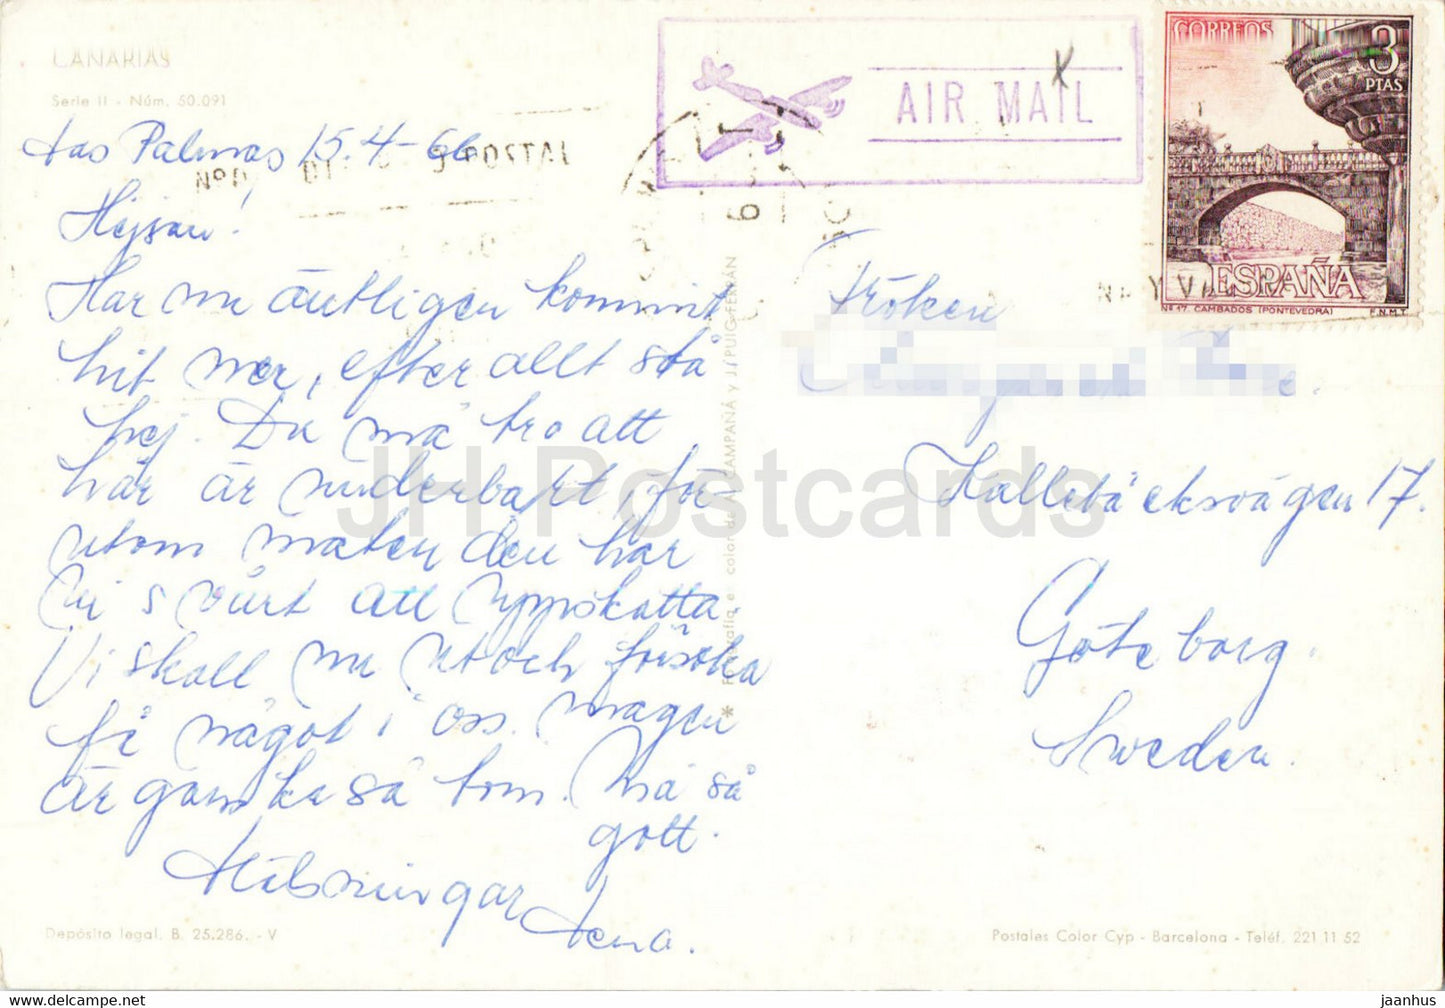 CANARIAS
Serie II - Núm. 50.091
Las Palmas 15.4-66
Nº D DI POSTAL
Hejsan!
Har nu äntligen kommit
hit ner, efter allt stå
hej. Du må tro att
här är underbart, för-
utom maten den har
vi svårt att uppskatta.
Vi skall nu ut och försöka
få något i oss. Magen
är ganska så tom. Må så
gott.
Hälsningar
Lena.
Depósito legal. B. 25.286. - V
CAMPAÑA y J. PUIG-FERRÁN
AIR MAIL
CORREOS
3
PTAS
ESPAÑA
Nº 17. CAMBADOS (PONTEVEDRA) F.N.M.T.
Fröken
Kallebäcksvägen 17.
Göteborg.
Sweden.
Postales Color Cyp - Barcelona - Teléf. 221 11 52
JH Postcards
www.delcampe.net
jaanhus